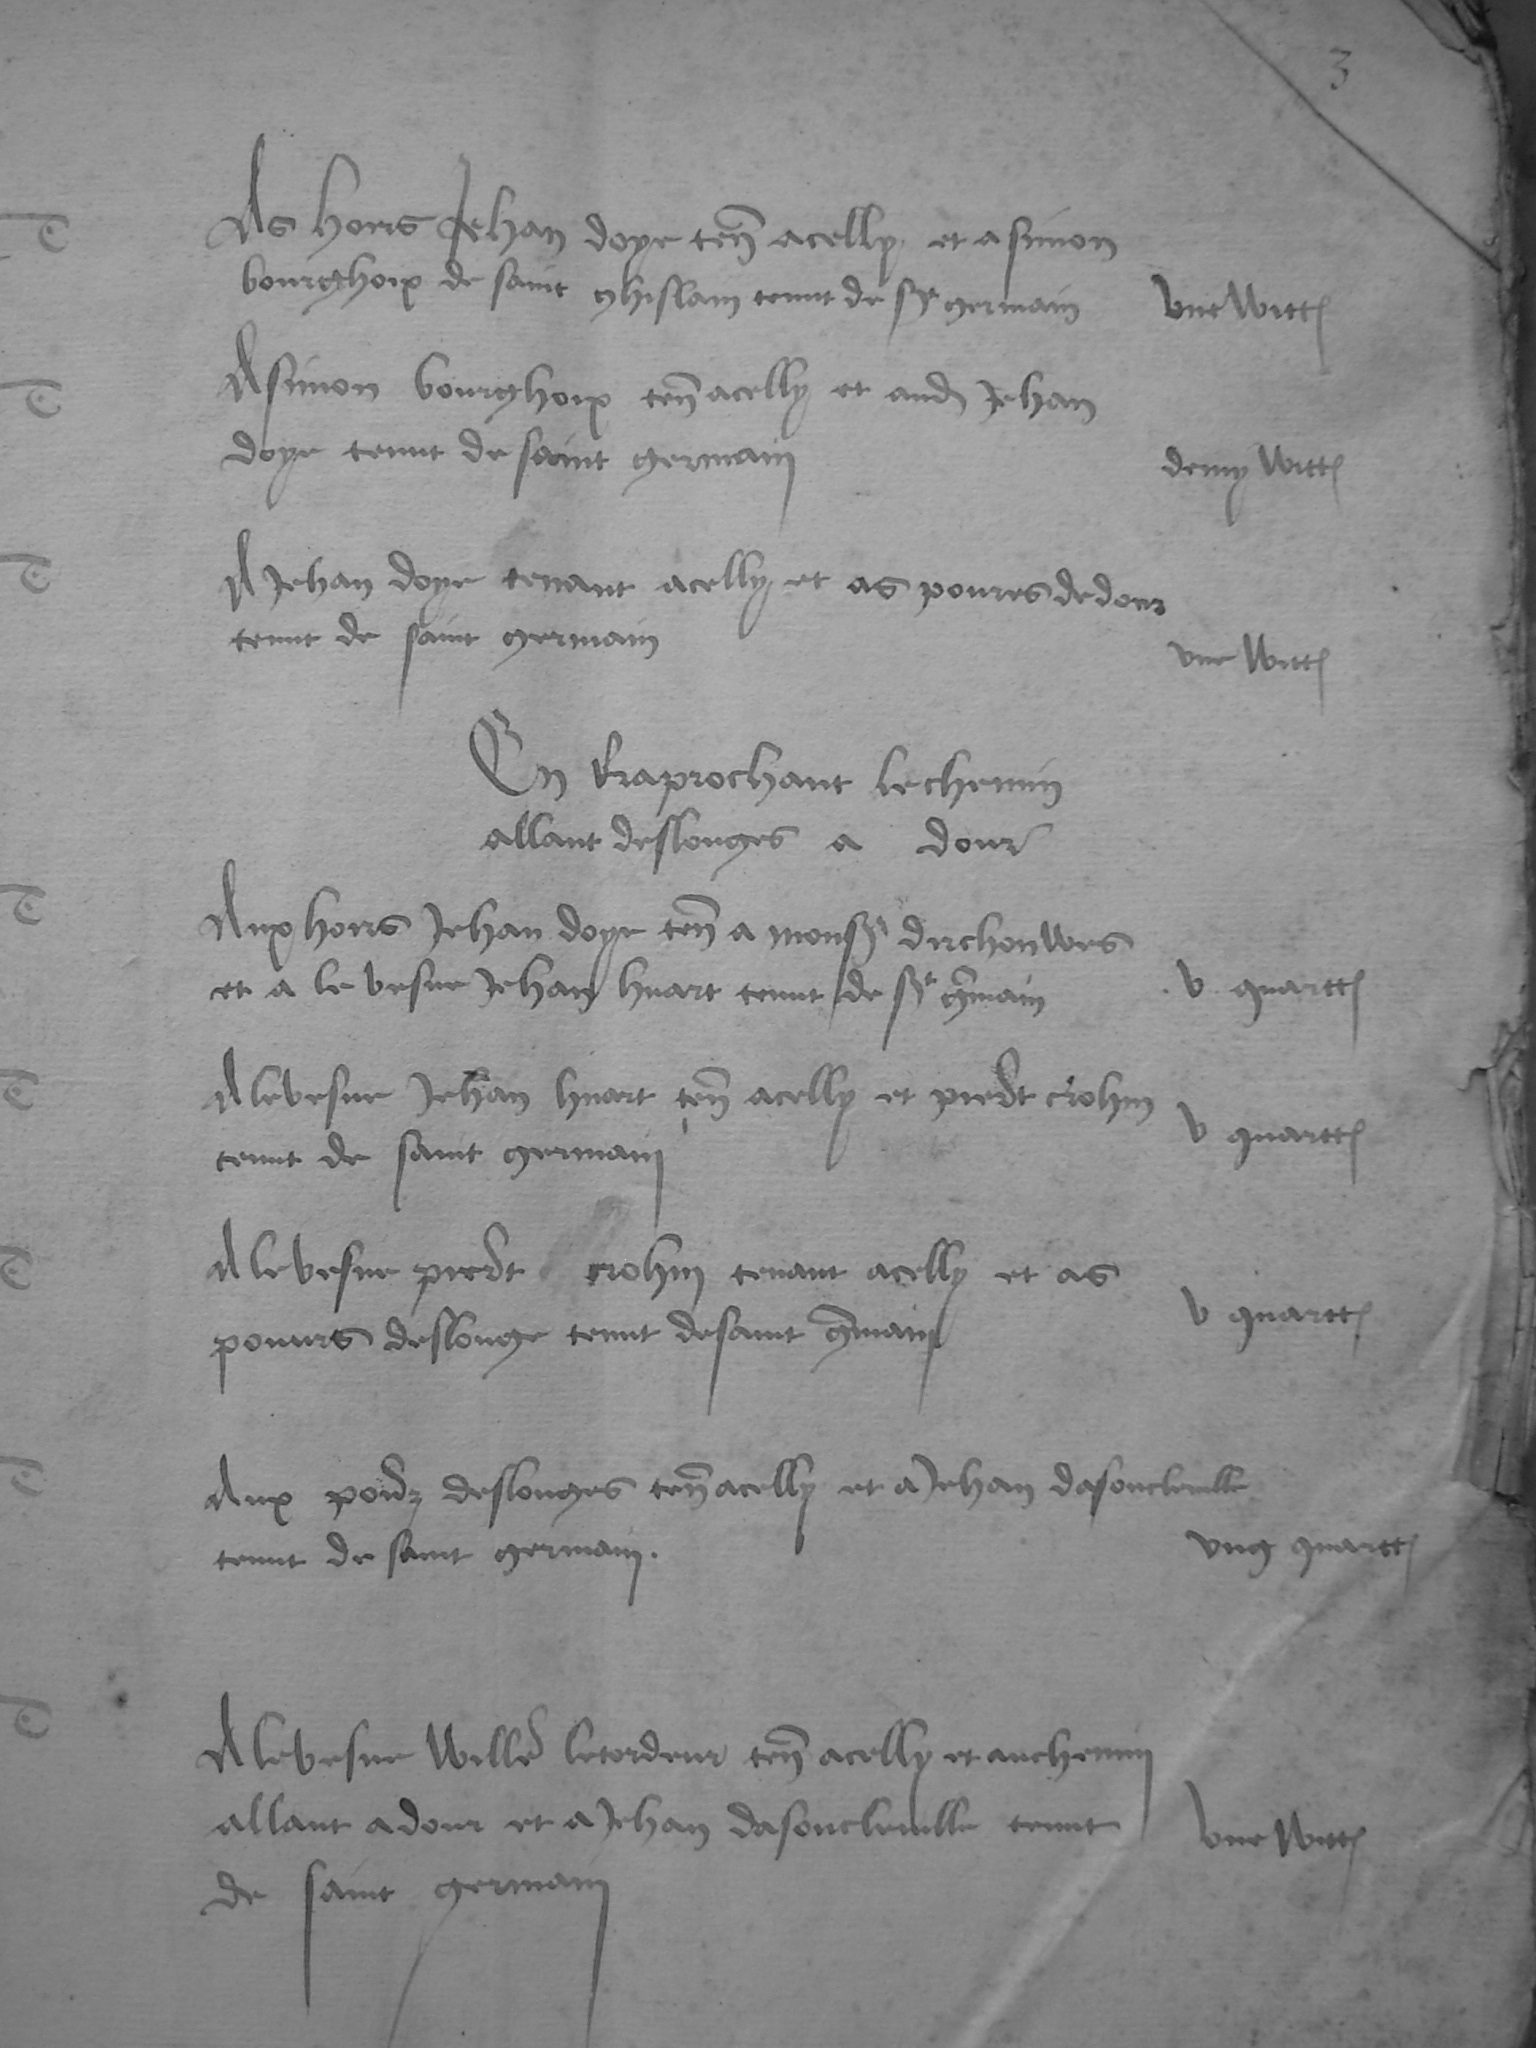 3
As hoirs Jehan doye ten acelly et a simon
bourghoix de saint ghislain tennt de st germain
Vne Witt
A simon bourghoix ten acelly et aud Jehan
doye tennt de saint germain
demy Witt
A Jehan doye tenant acelly et as poures de dour
tennt de saint germain
vne Witt
En Raprochant le chemin
allant deslouges a dour
Aux hoirs Jehan doye ten a monsr dirchonwes
et a le vesue Jehan huart tennt de st gmain
v quartt
A le vesue Jehan huart ten acelly et piert crohin
tennt de saint germain
v quartt
A le vesue piert crohin tenant acelly et as
poures deslouge tennt de saint gmain
v quartt
Aux deslouges ten acelly et a Jehan dasoncleuille
tennt de saint germain.
vng quartt
A le vesue Wille letordeur ten acelly et au chemin
allant a dour et a Jehan dasoncleuille tennt
Vne Witt
de saint germain